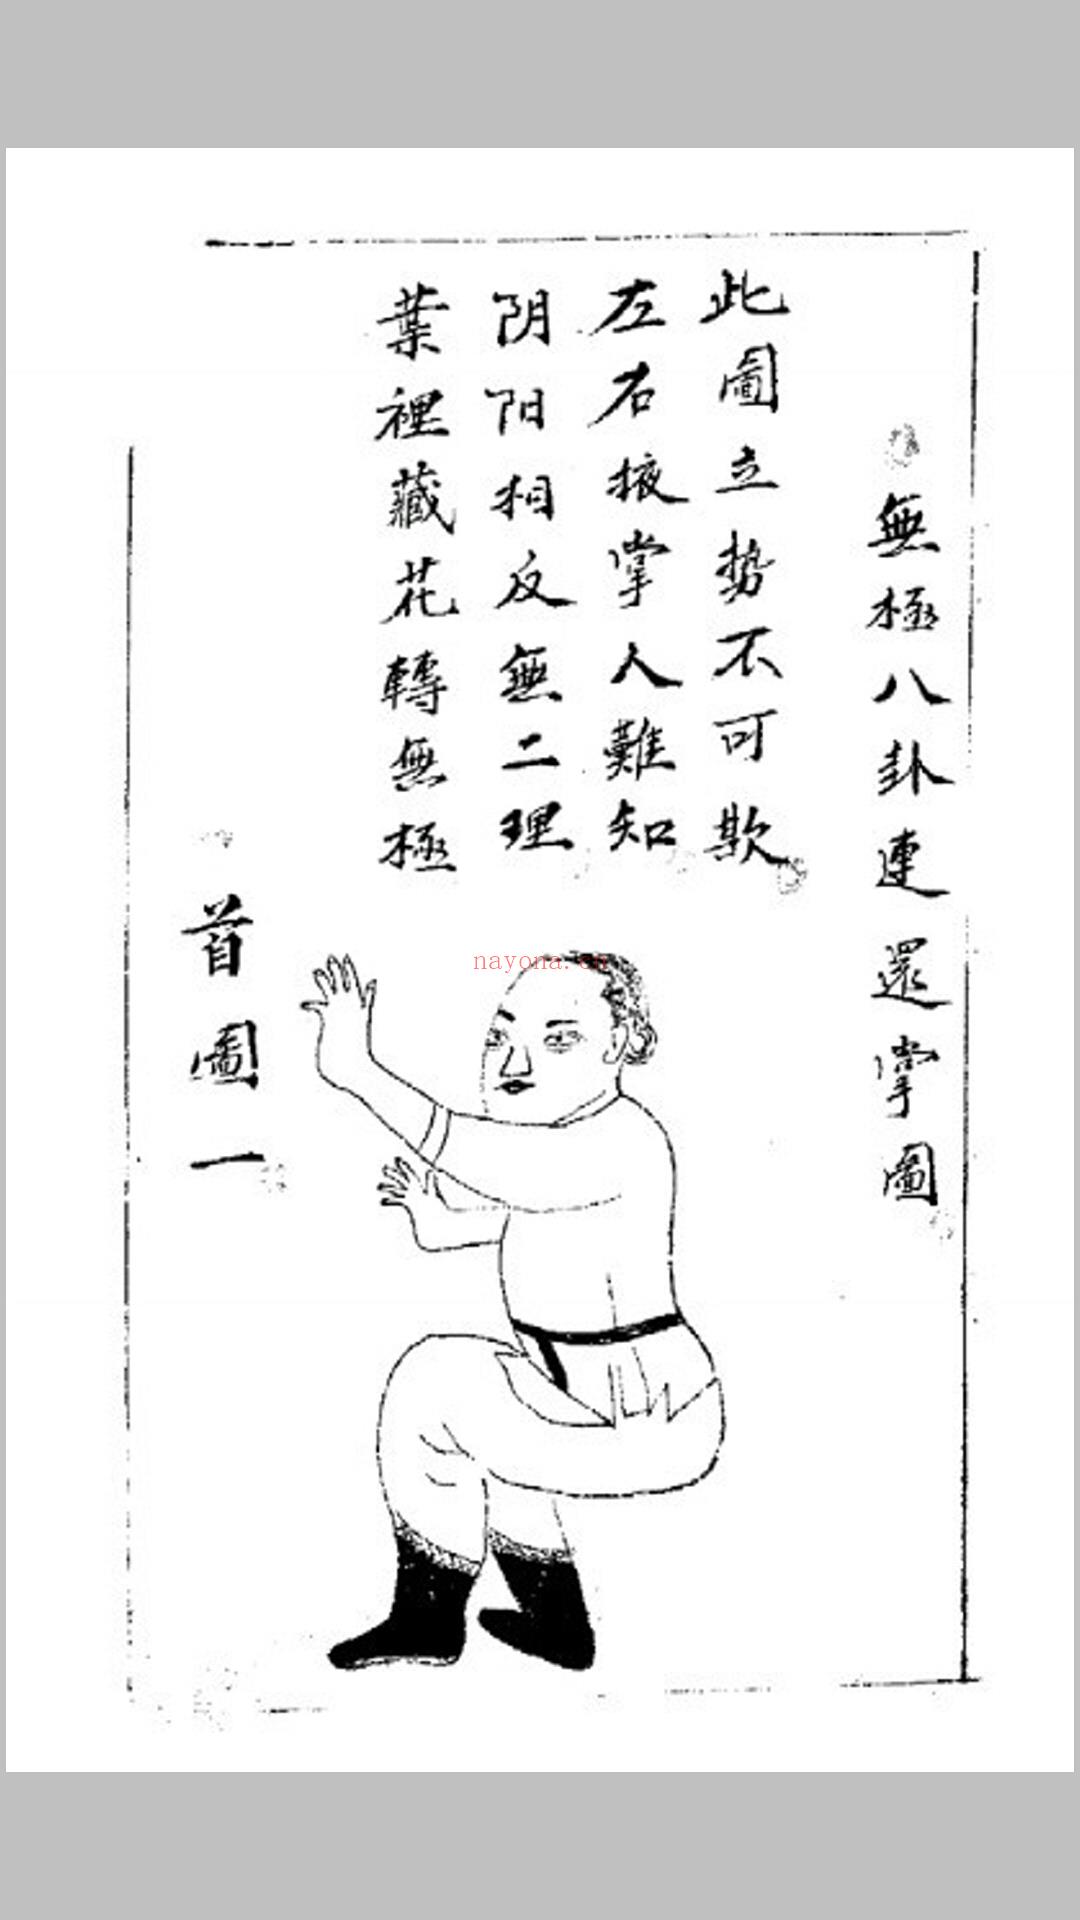 無極八卦連還掌圖
此圖立势不可欺
左右掖掌人難知
阴阳相反無二理
葉裡藏花轉無極
首圖一
nayona.cn